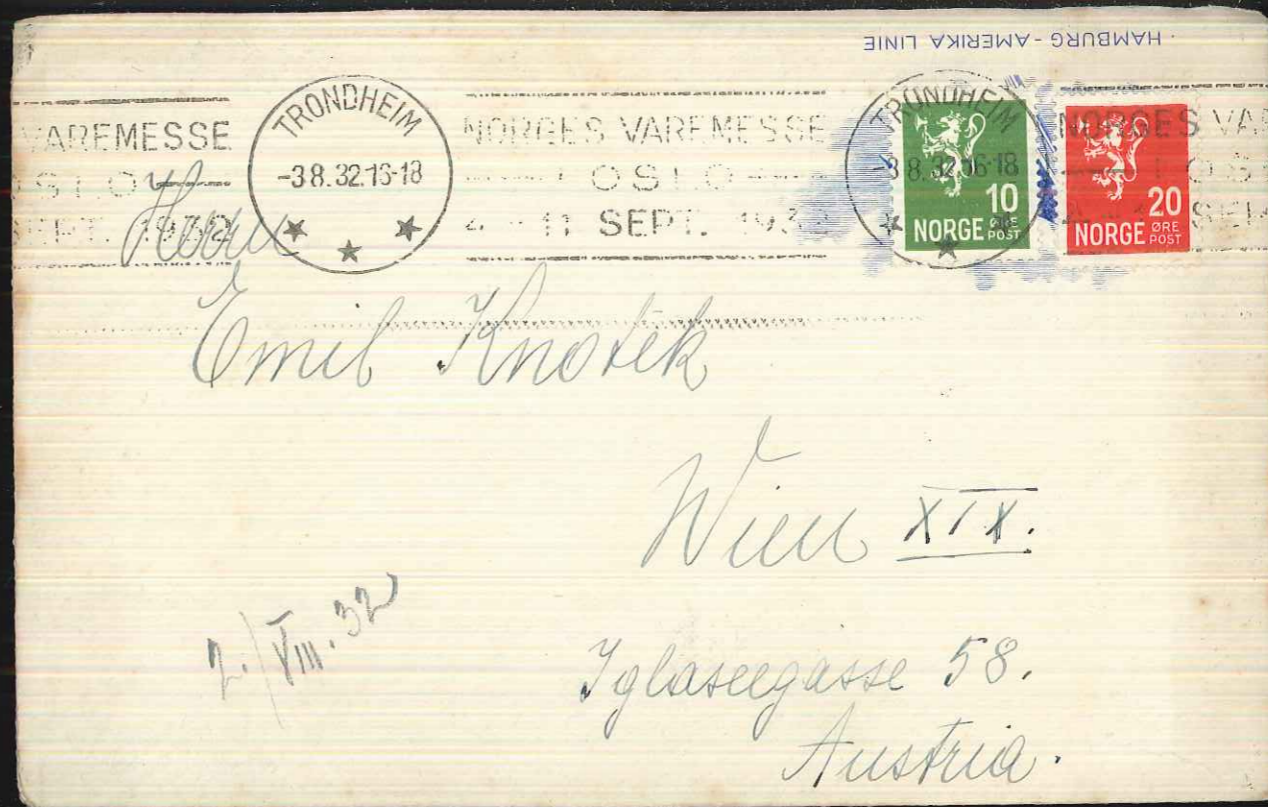 · HAMBURG - AMERIKA LINIE
VAREMESSE
OSLO
SEPT. 1932
TRONDHEIM
-3 8. 32.16-18
NORGES VAREMESSE
OSLO
4 - 11 SEPT. 1932
TRONDHEIM
-3 8. 32. 16-18
10
NORGE ØRE POST
NORGES VAR
OS
SE
20
NORGE ØRE POST
Herrn
Emil Knotek
Wien XIX.
2./VIII. 32
Iglaseegasse 58.
Austria.